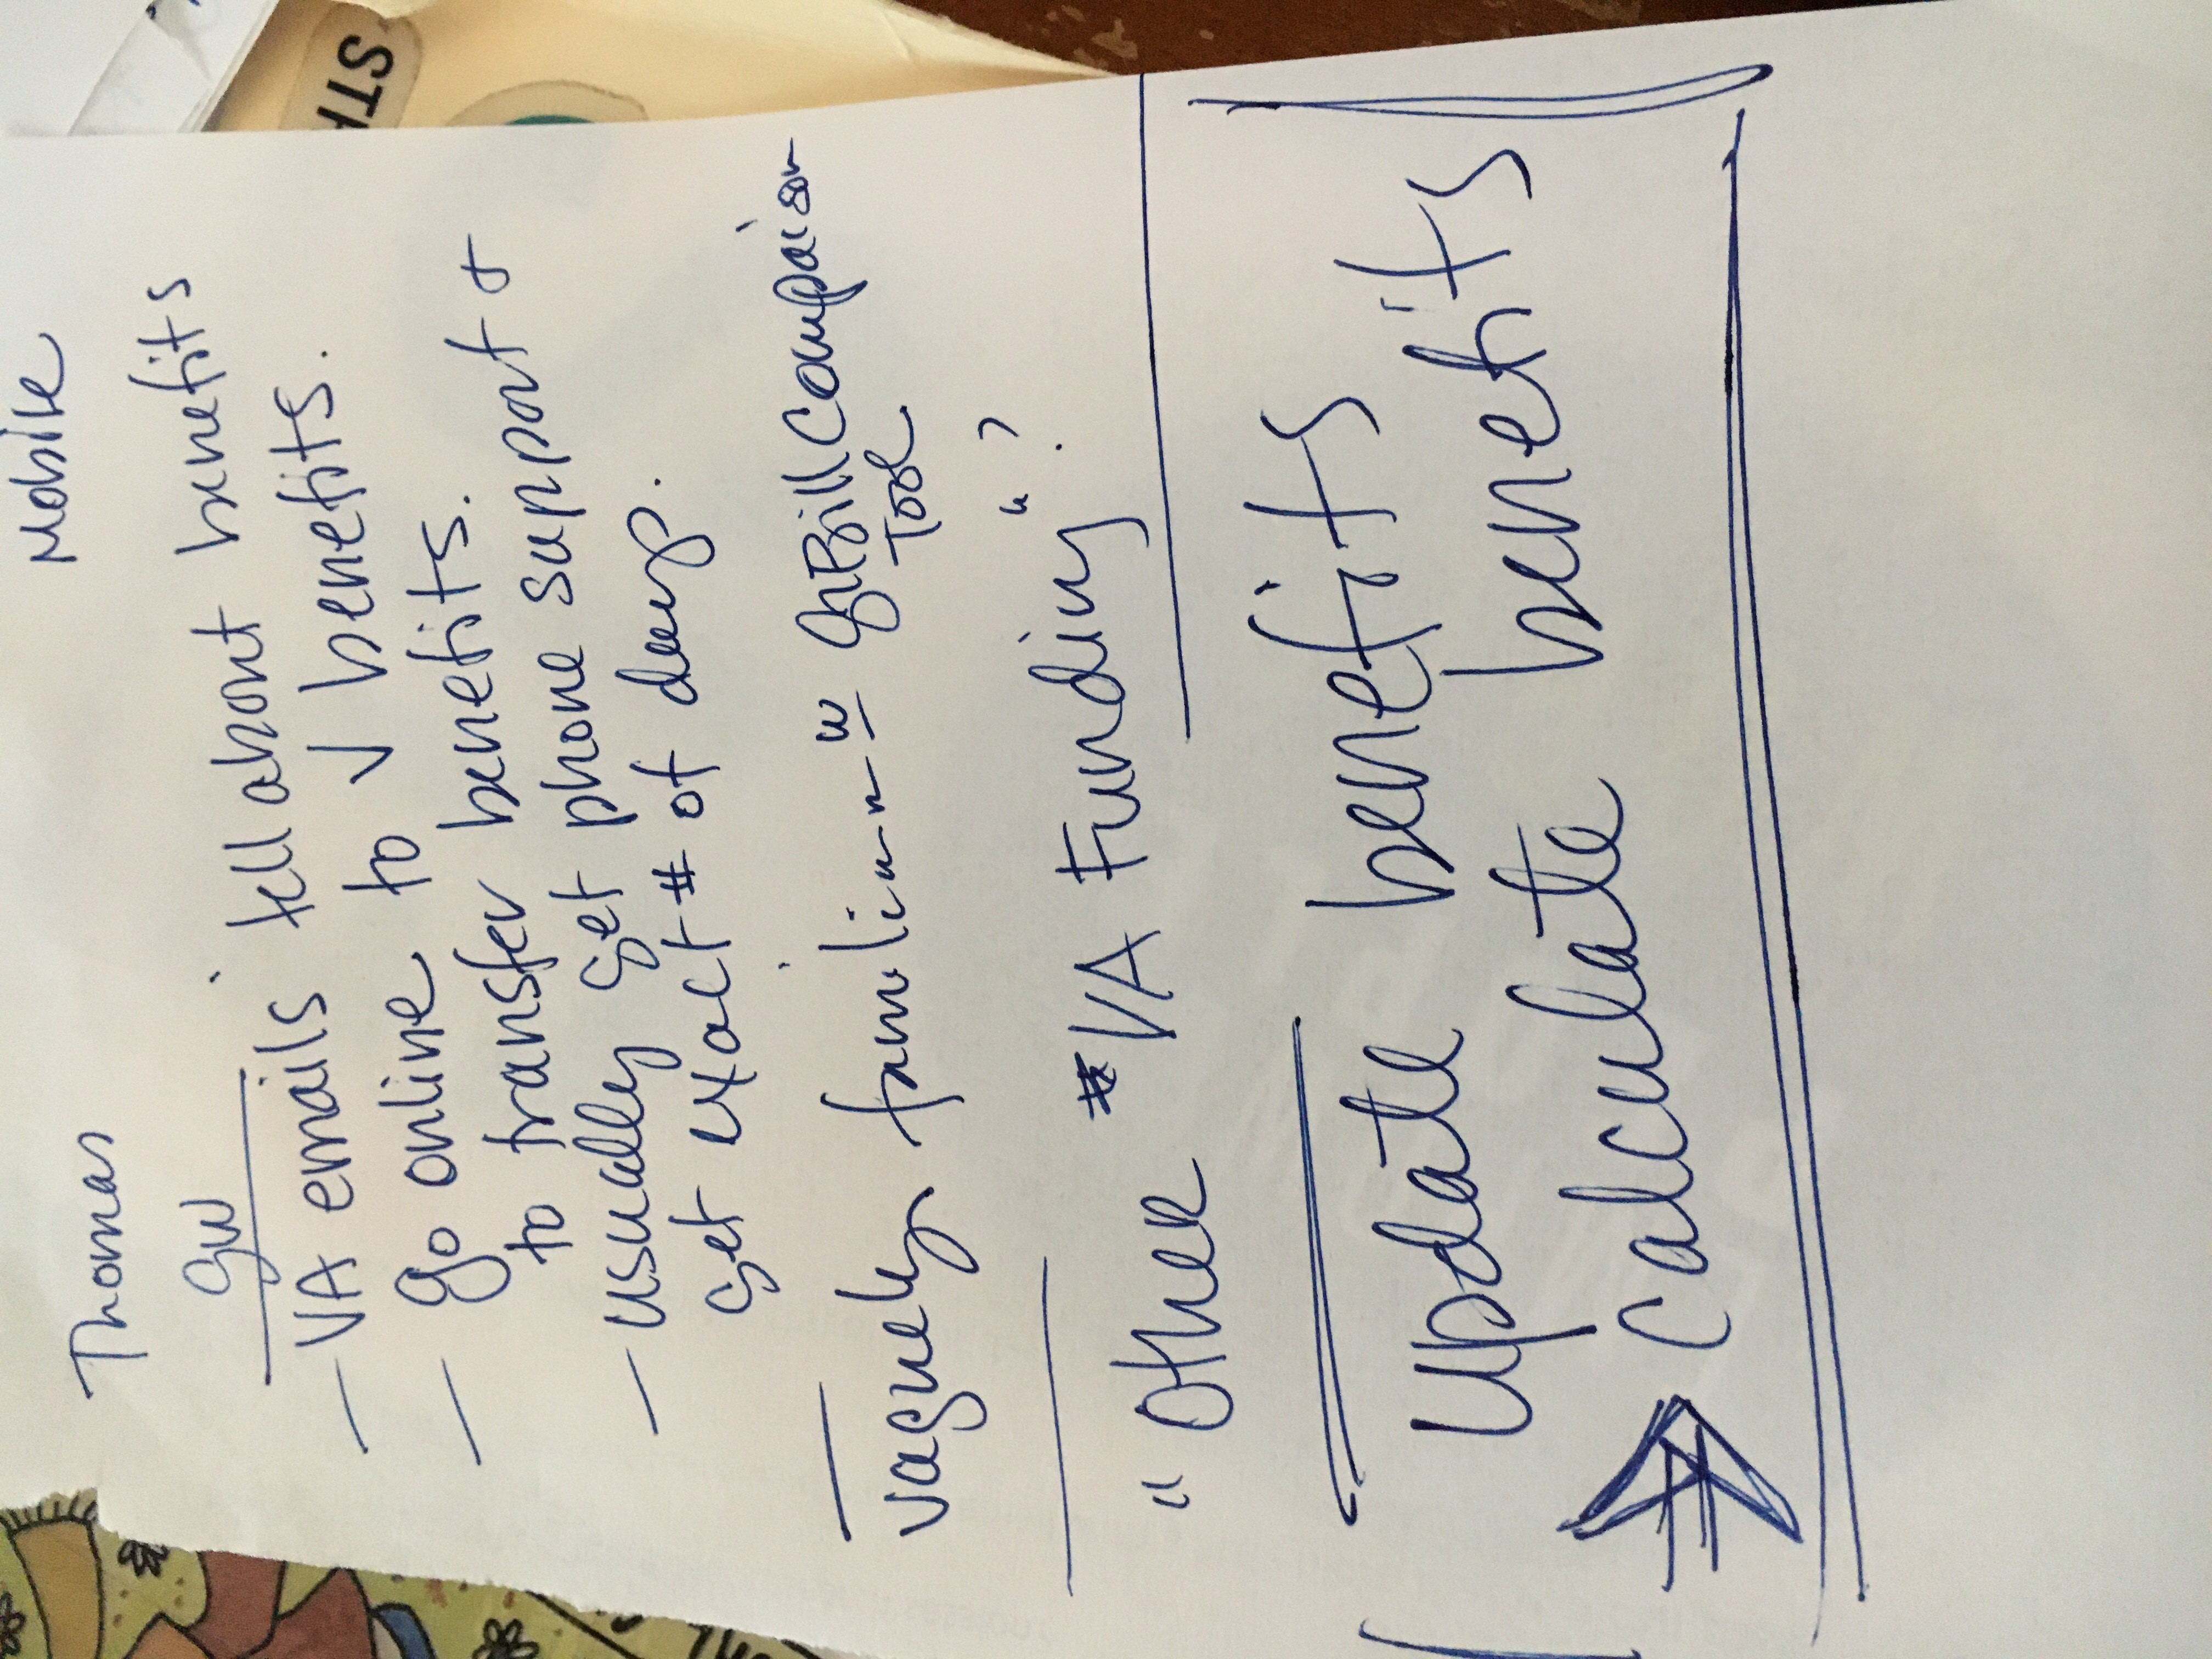 Mobile
Thomas
GW
– VA emails tell about benefits
– go online to √ benefits.
to transfer benefits.
– usually get phone support &
get exact # of days.
vaguely familiar w GIBill Compaison
Tool
"Other VA Funding"?
Update benefits
⇒ Calculate benefits